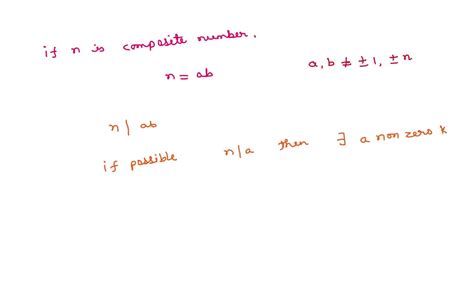 if n is composite number.
n = ab a, b ≠ ±1, ±n
n | ab
if possible n/a then ∃ a non zero k